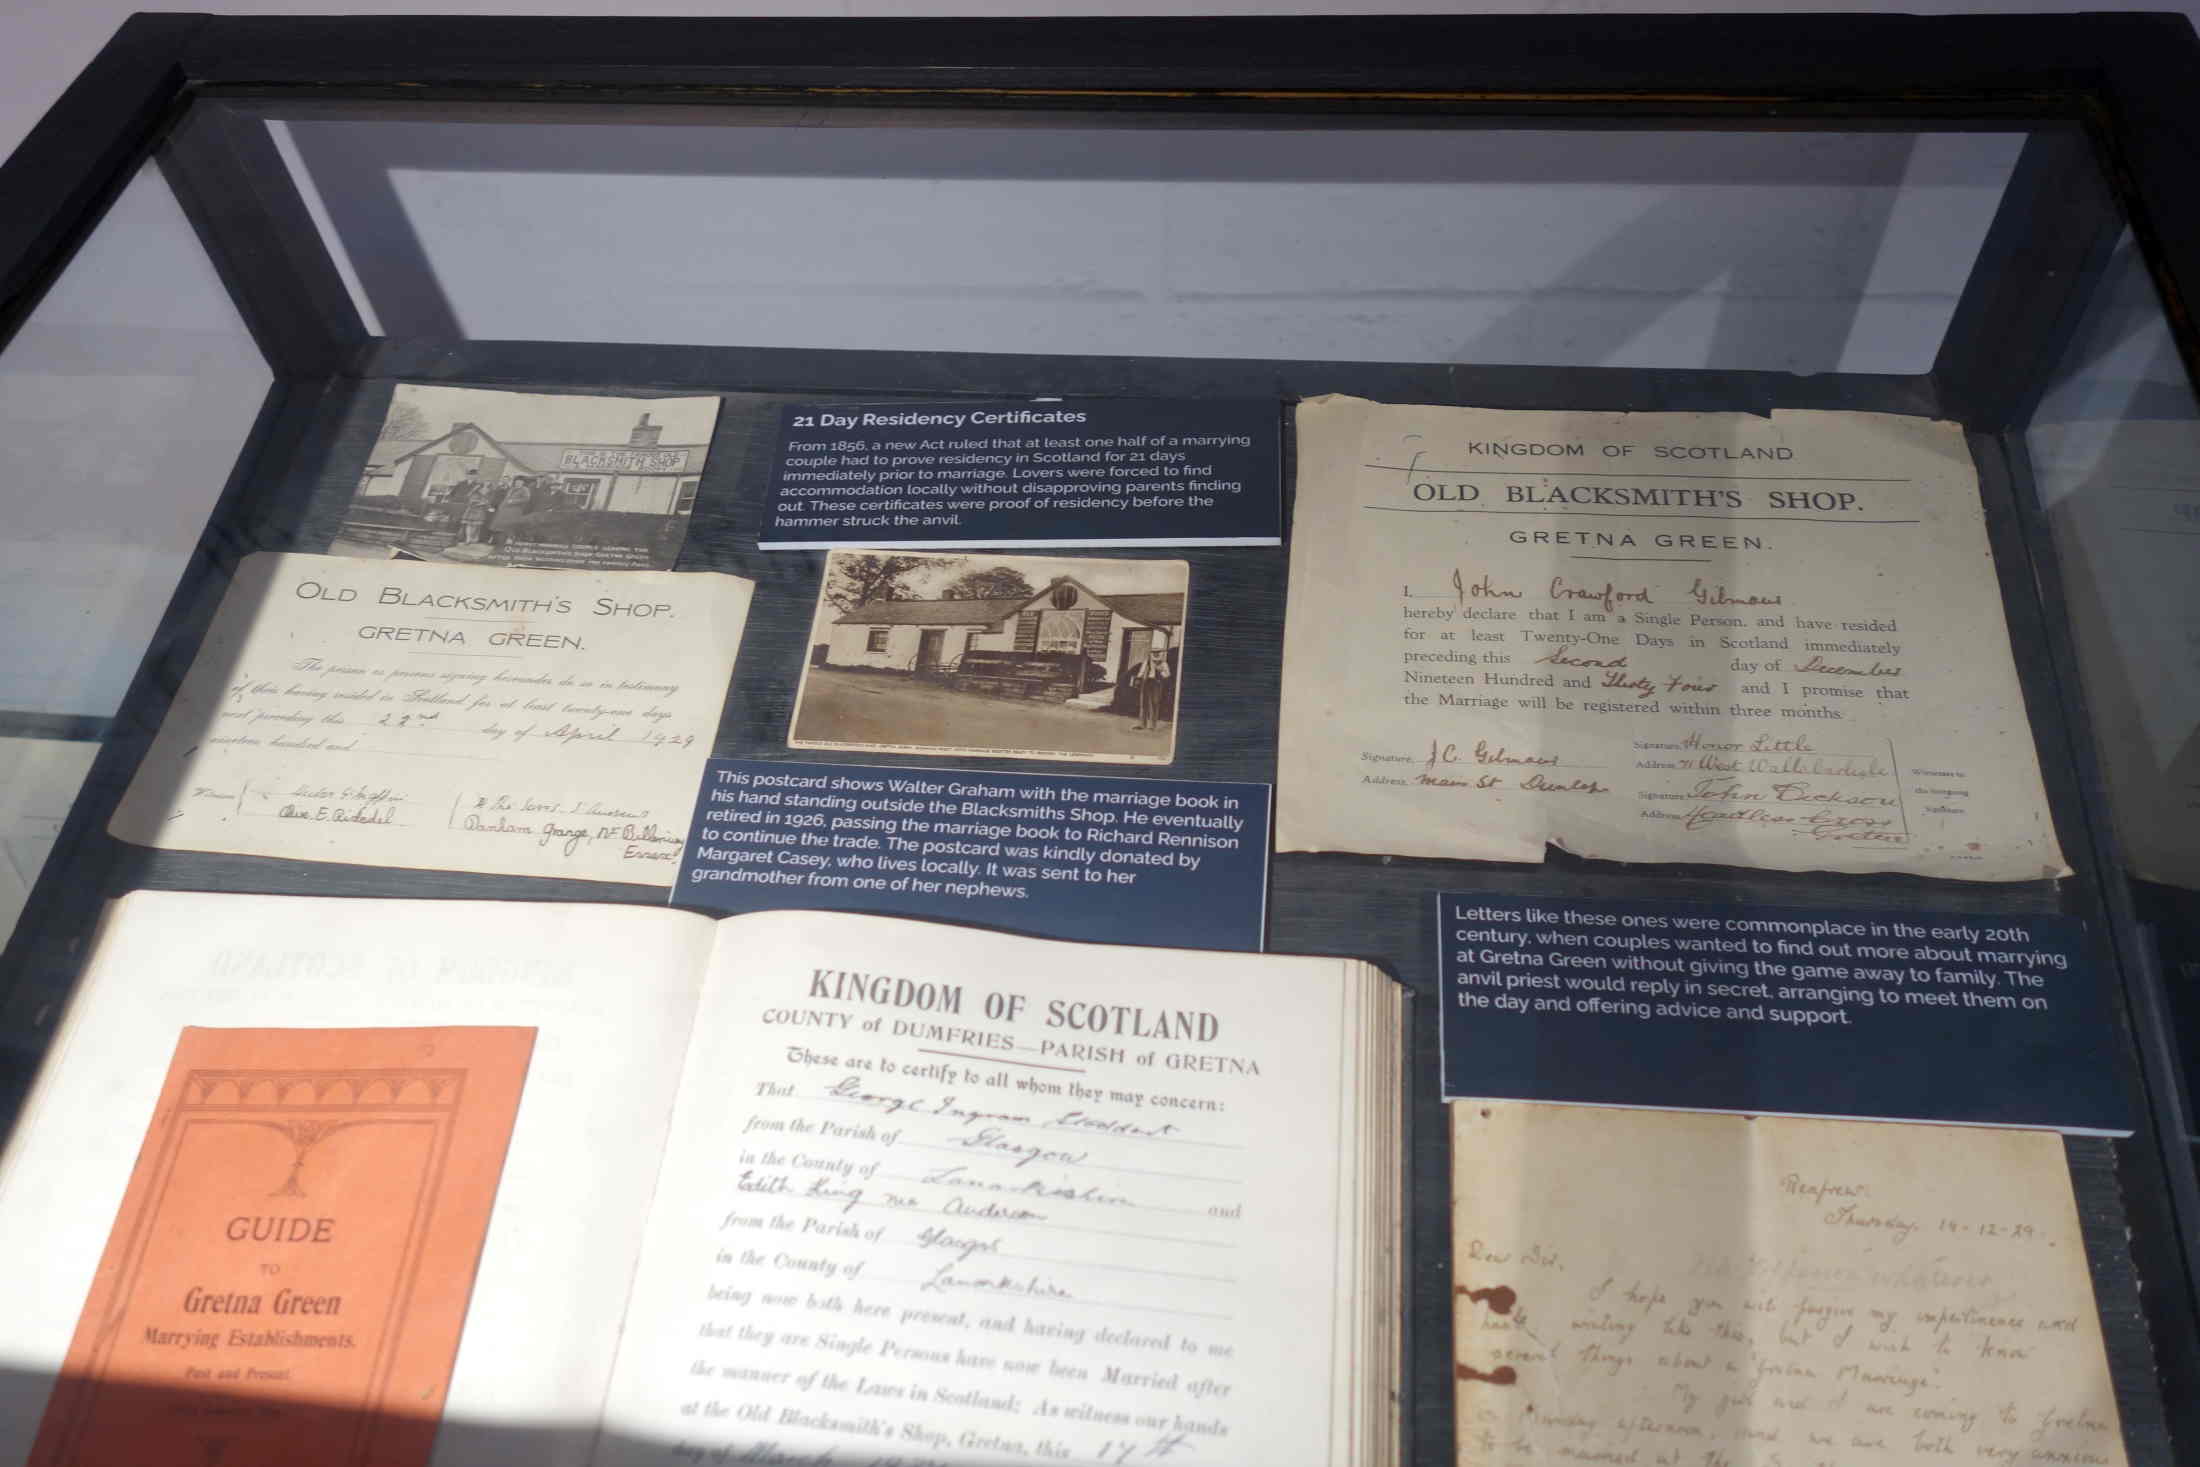 BLACKSMITH SHOP
A NEWLY-MARRIED COUPLE LEAVING THE
OLD BLACKSMITH'S SHOP, GRETNA GREEN
21 Day Residency Certificates
From 1856, a new Act ruled that at least one half of a marrying
couple had to prove residency in Scotland for 21 days
immediately prior to marriage. Lovers were forced to find
accommodation locally without disapproving parents finding
out. These certificates were proof of residency before the
hammer struck the anvil.
KINGDOM OF SCOTLAND
OLD BLACKSMITH'S SHOP.
GRETNA GREEN.
I, John Crawford Gilmour
hereby declare that I am a Single Person, and have resided
for at least Twenty-One Days in Scotland immediately
preceding this Second day of December
Nineteen Hundred and Thirty Four and I promise that
the Marriage will be registered within three months.
Signature, J.C. Gilmour
Address, Main St Dunlop
Signature, Honor Little
Address, 71 West Walls Carlisle
Signature, John Dickson
Address, Headless Cross
Gretna
Witnesses to
the foregoing
Signature
OLD BLACKSMITH'S SHOP.
GRETNA GREEN.
The person or persons signing hereunder do so in testimony
of their having resided in Scotland for at least twenty-one days
next preceding this 22nd day of April 1929
nineteen hundred and
Witnesses
Olive E.
Danham Grange, Nr Billericay
Essex
This postcard shows Walter Graham with the marriage book in
his hand standing outside the Blacksmiths Shop. He eventually
retired in 1926, passing the marriage book to Richard Rennison
to continue the trade. The postcard was kindly donated by
Margaret Casey, who lives locally. It was sent to her
grandmother from one of her nephews.
Letters like these ones were commonplace in the early 20th
century, when couples wanted to find out more about marrying
at Gretna Green without giving the game away to family. The
anvil priest would reply in secret, arranging to meet them on
the day and offering advice and support.
GUIDE
TO
Gretna Green
Marrying Establishments.
Past and Present
KINGDOM OF SCOTLAND
COUNTY of DUMFRIES—PARISH of GRETNA
These are to certify to all whom they may concern:
That George Ingram Stoddart
from the Parish of Glasgow
in the County of Lanarkshire and
Edith King Anderson
from the Parish of Glasgow
in the County of Lanarkshire
being now both here present, and having declared to me
that they are Single Persons have now been Married after
the manner of the Laws in Scotland; As witness our hands
at the Old Blacksmith's Shop, Gretna, this 17th
day of March
Renfrew.
Thursday, 14-12-29.
Dear Sir,
I hope you will forgive my impertinence and
writing like this, but I wish to know
several things about a "Gretna Marriage".
My girl and I are coming to Gretna
on Monday afternoon, and we are both very anxious
to be married at the